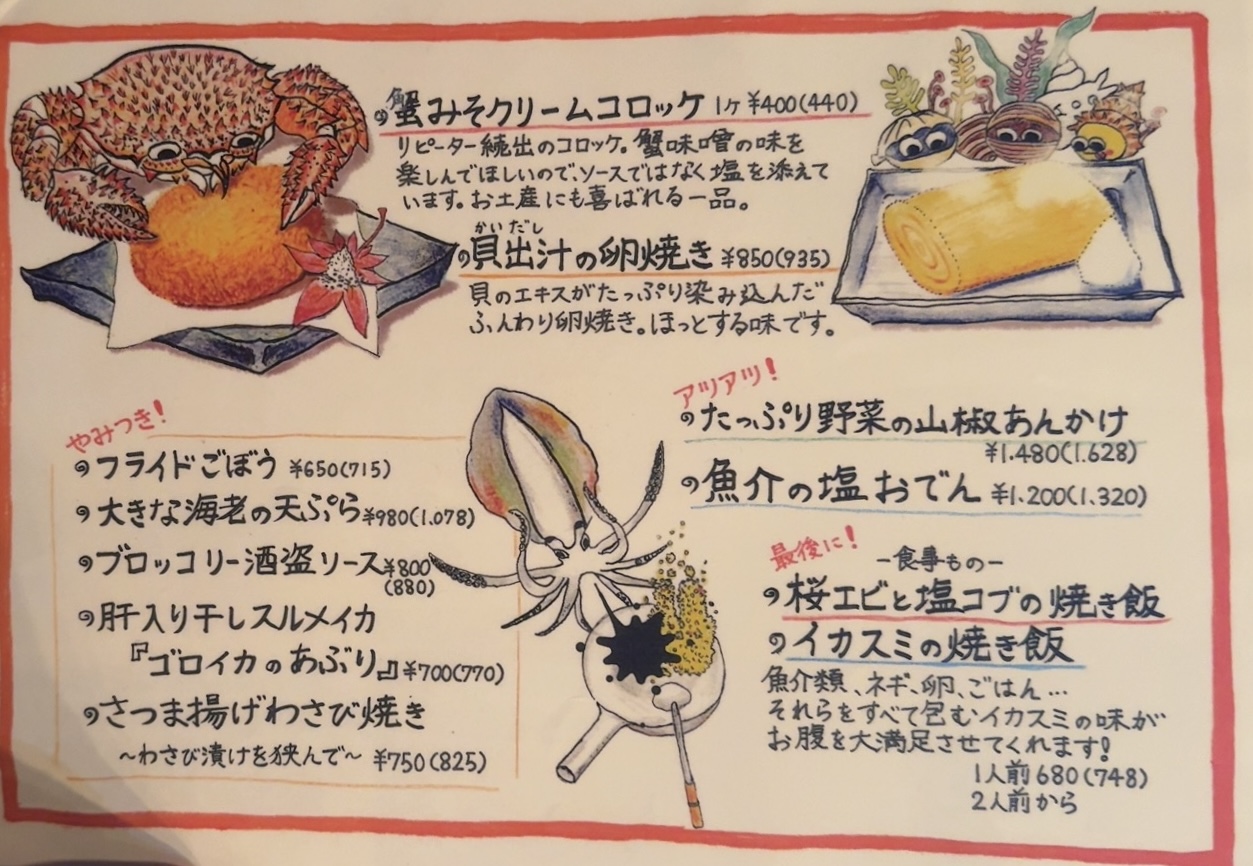 蟹みそクリームコロッケ 1ヶ ¥400(440)
リピーター続出のコロッケ。蟹味噌の味を
楽しんでほしいので、ソースではなく塩を添えて
います。お土産にも喜ばれる一品。
かいだし
貝出汁の卵焼き ¥850(935)
貝のエキスがたっぷり染み込んだ
ふんわり卵焼き。ほっとする味です。
やみつき!
フライドごぼう ¥650(715)
大きな海老の天ぷら ¥980(1.078)
ブロッコリー酒盗ソース ¥800
(880)
肝入り干しスルメイカ
『ゴロイカのあぶり』 ¥700(770)
さつま揚げわさび焼き
~わさび漬けを狭んで~ ¥750(825)
アツアツ!
たっぷり野菜の山椒あんかけ
¥1.480(1.628)
魚介の塩おでん ¥1.200(1.320)
最後に!
-食事もの-
桜エビと塩コブの焼き飯
イカスミの焼き飯
魚介類、ネギ、卵、ごはん…
それらをすべて包むイカスミの味が
お腹を大満足させてくれます!
1人前 680(748)
2人前から